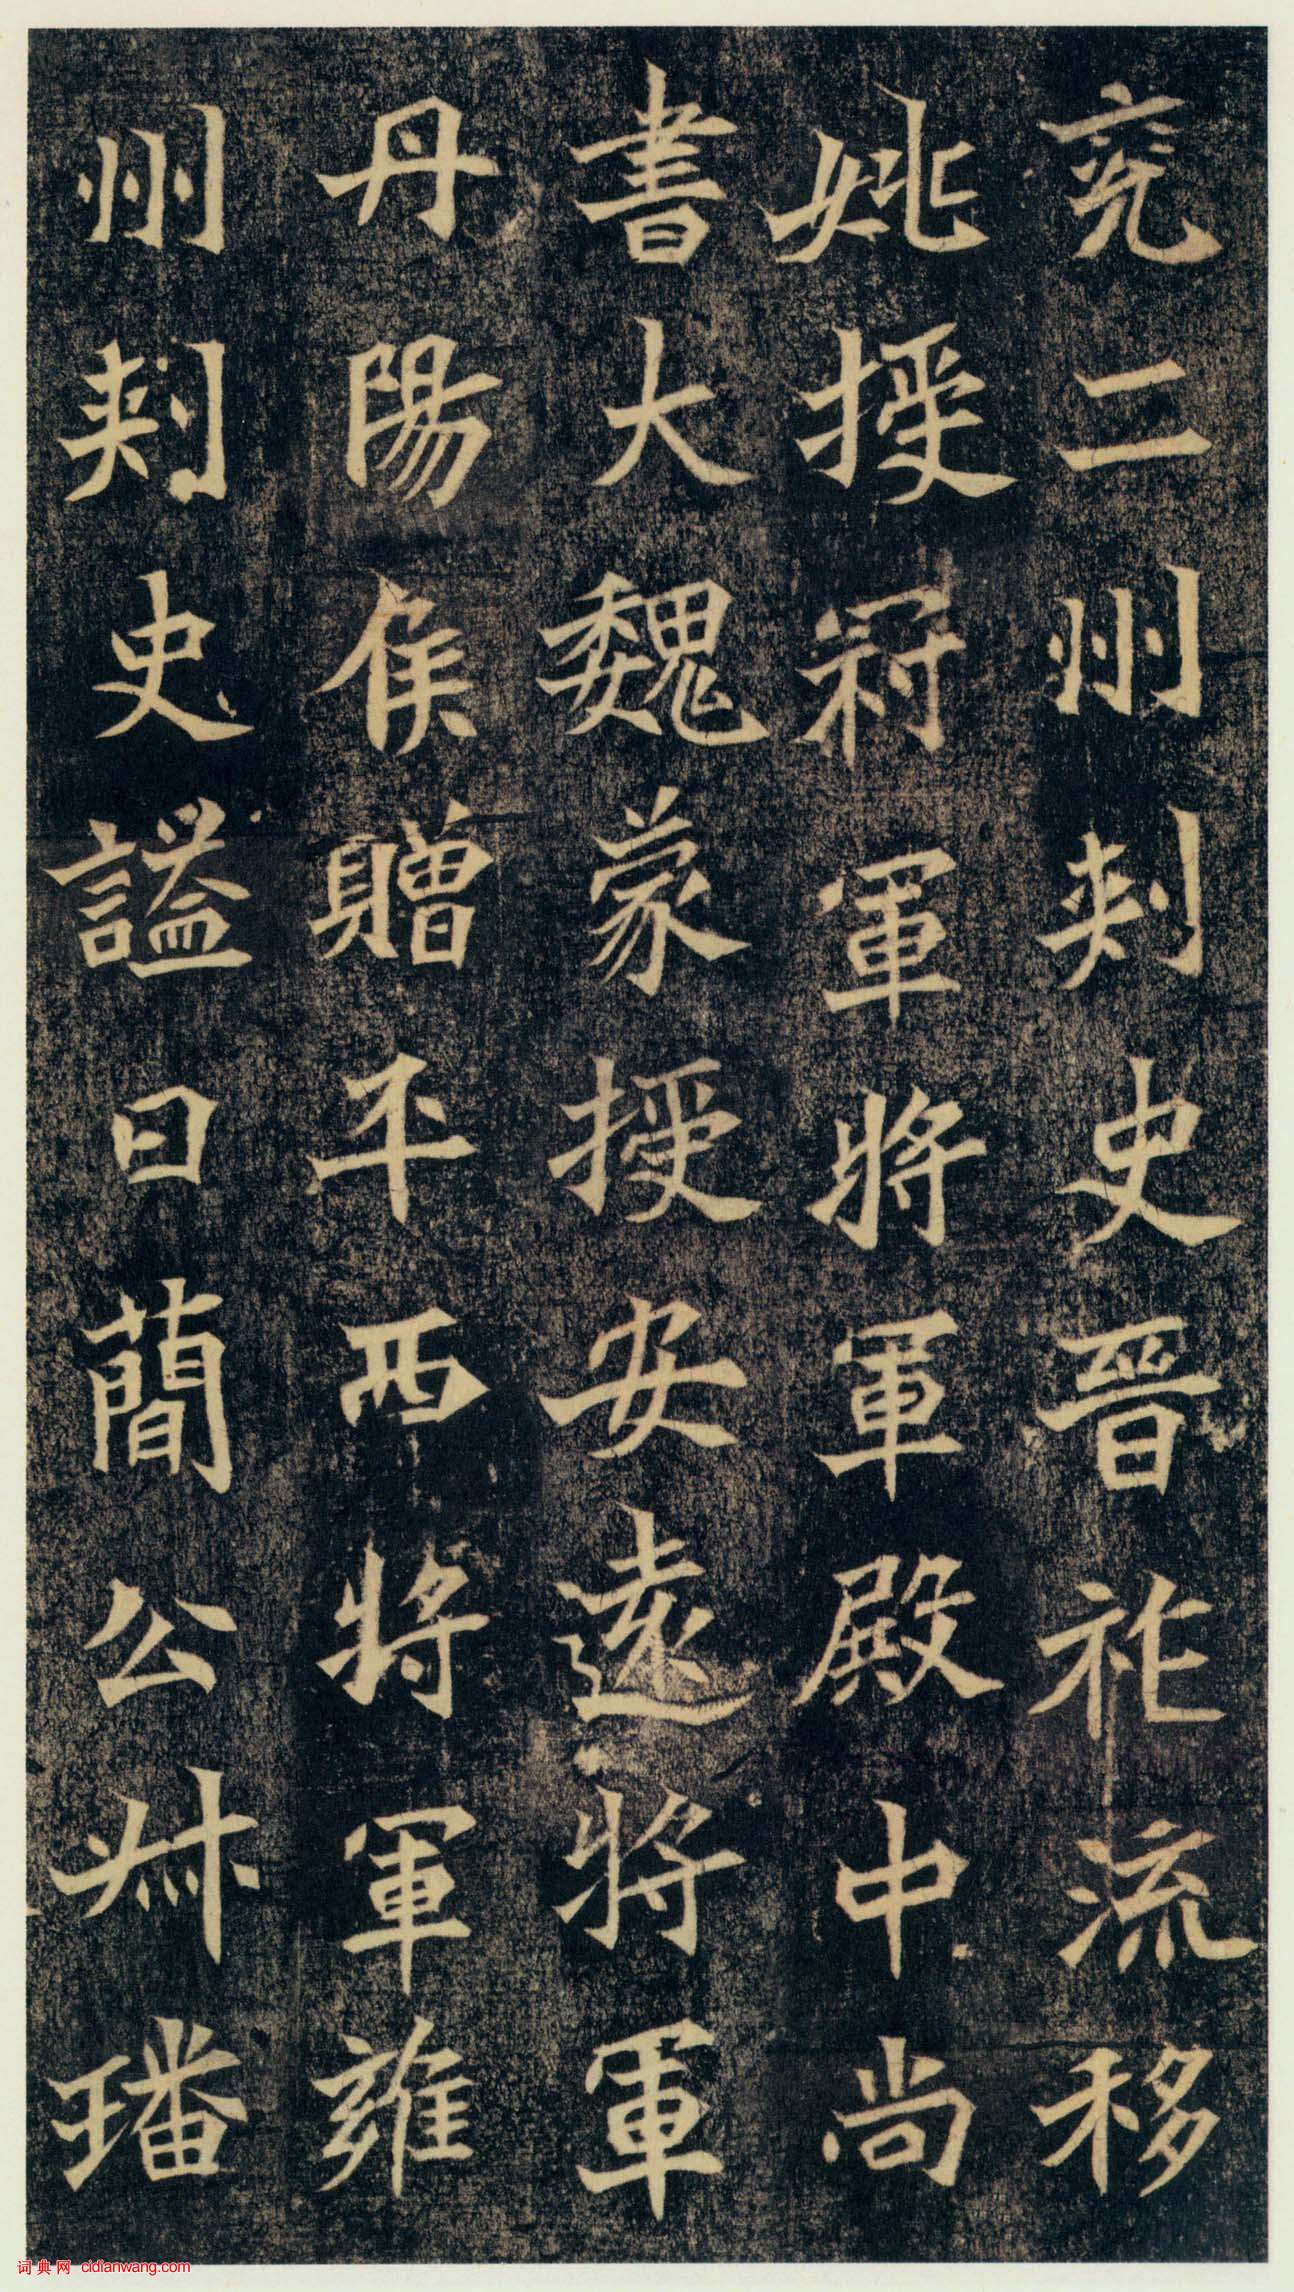 兗二州刺史晉祚流移
姚授冠軍將軍殿中尚
書大魏蒙授安遠將軍
丹陽侯贈平西將軍雍
州刺史謚曰蕳公叔璠
词典网 cidianwang.com